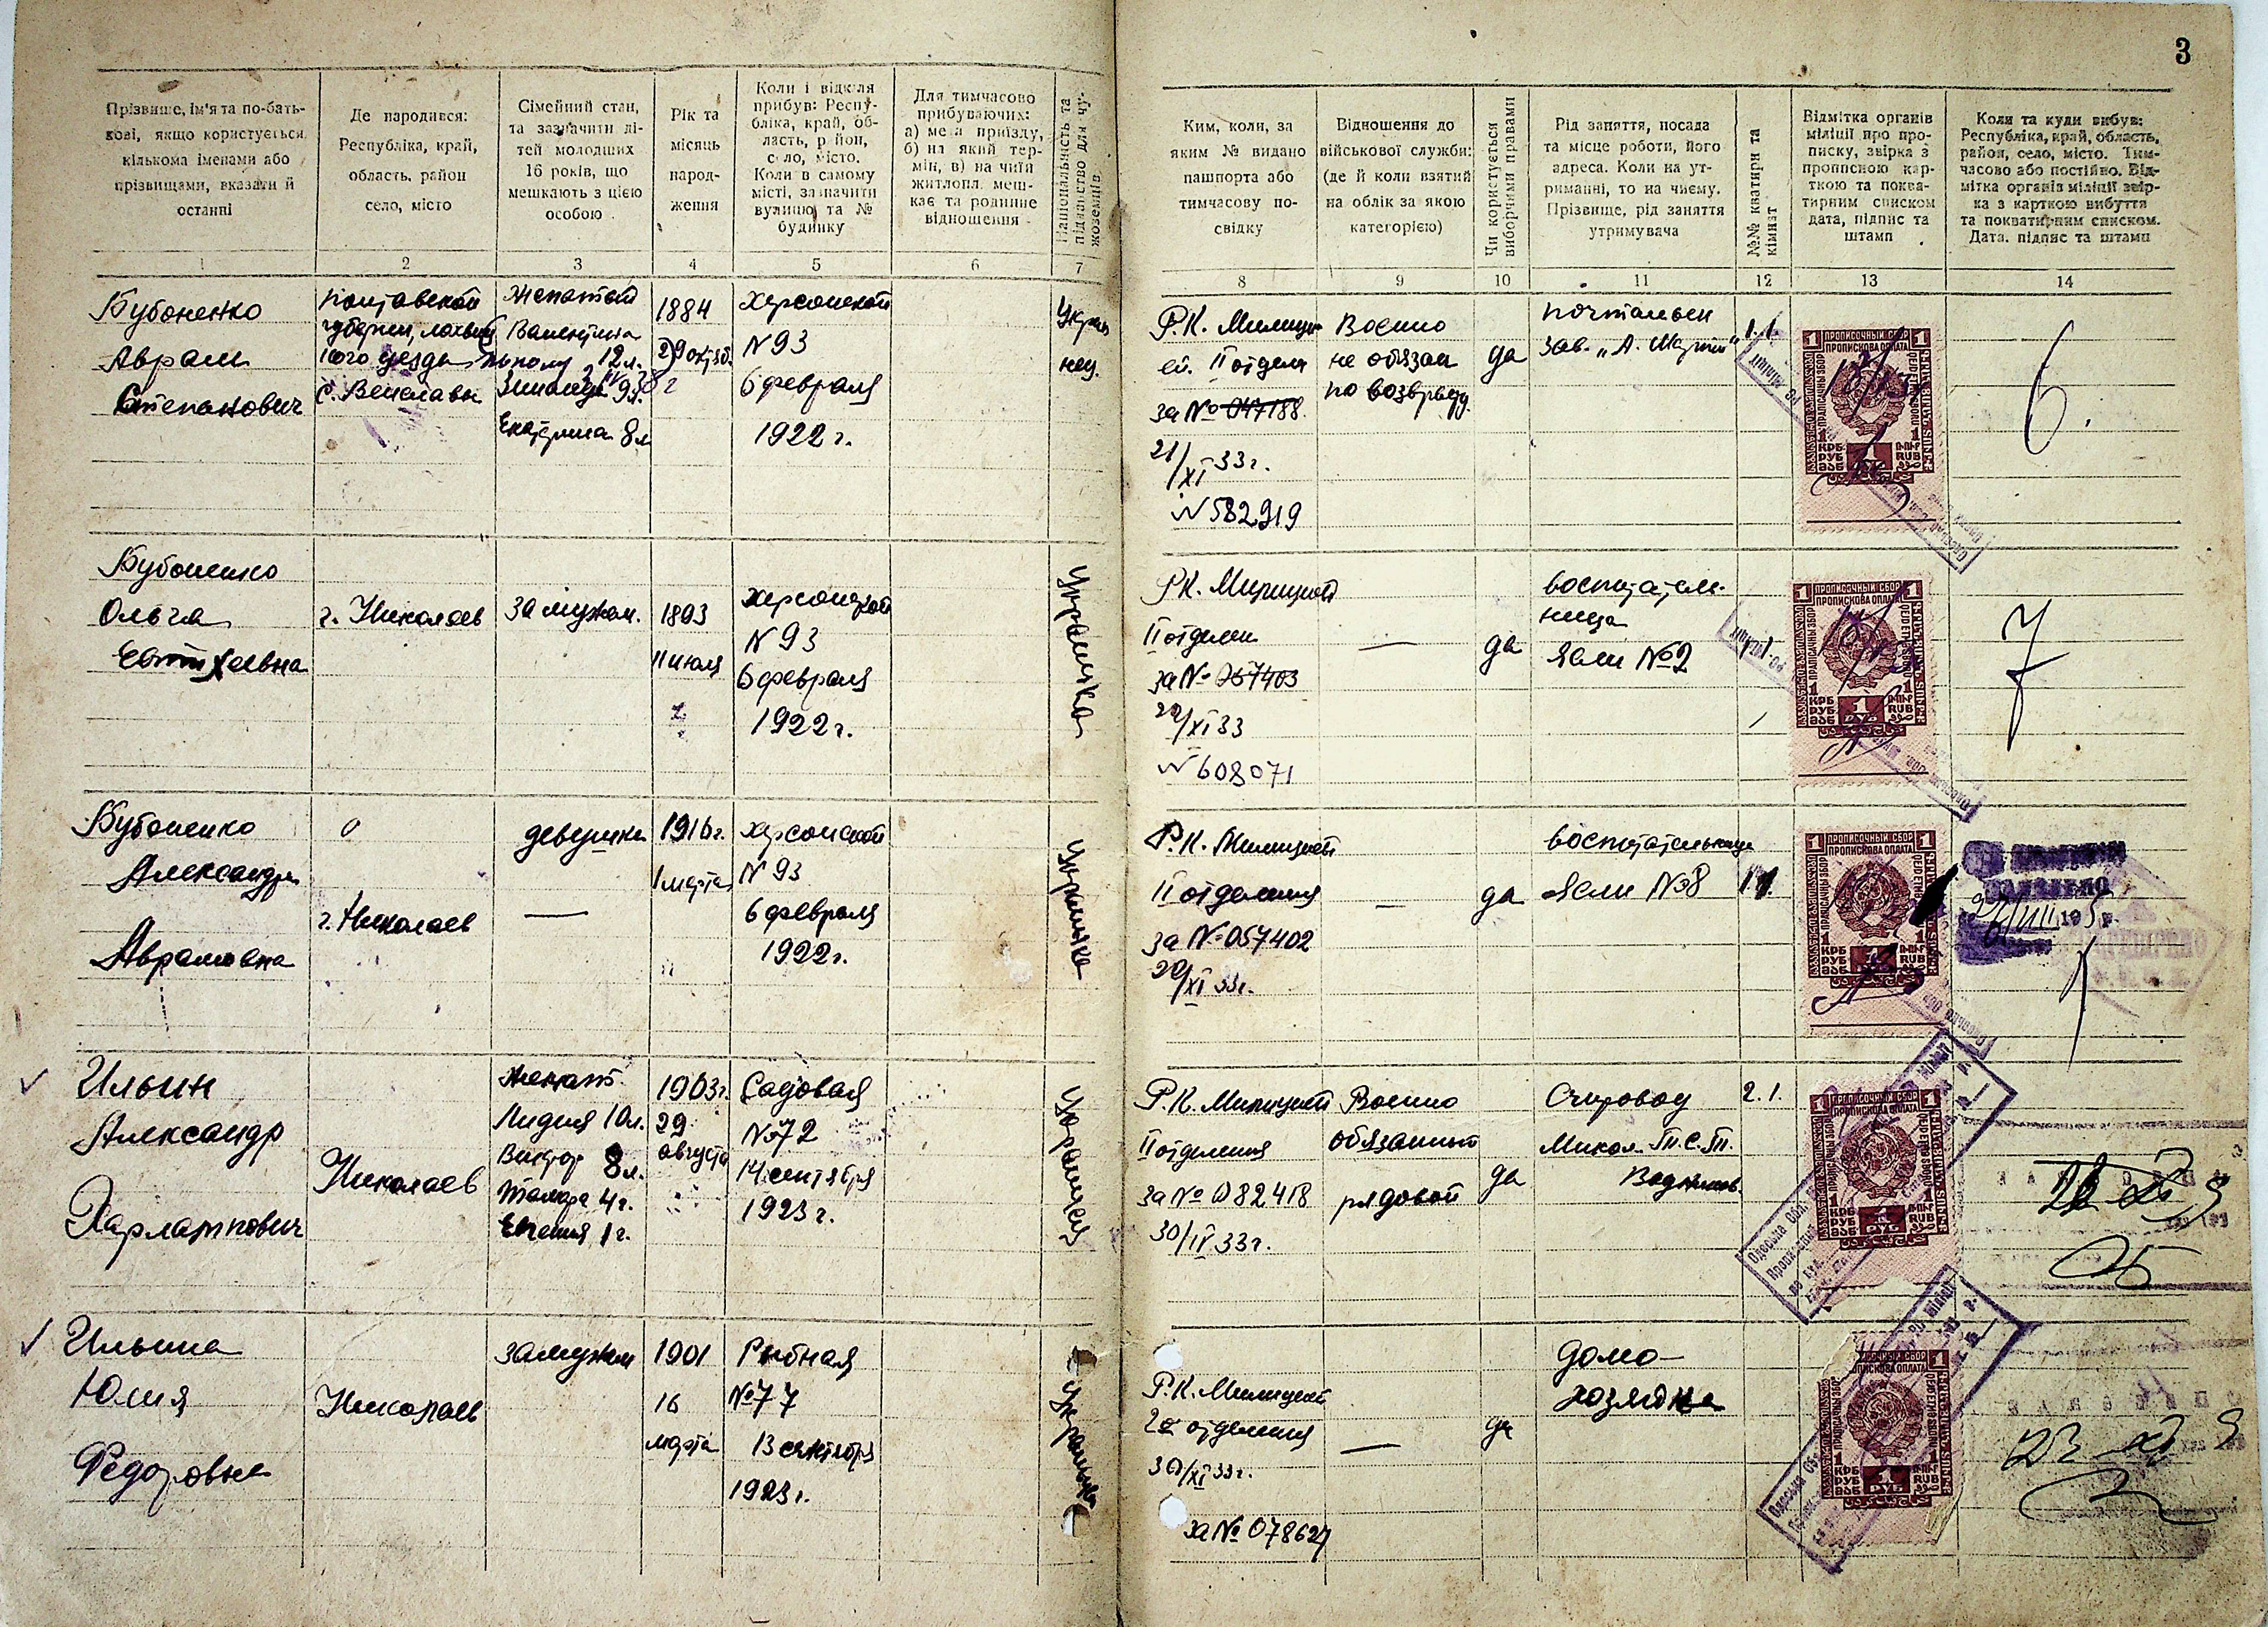 3
Прізвище, ім'я та по-бать-
кові, якщо користується
кількома іменами або
прізвищами, вказати й
останні
Де народився:
Республіка, край,
область, район
село, місто
Сімейний стан,
та зазначити ді-
тей молодших
16 років, що
мешкають з цією
особою
Рік та
місяць
народ-
ження
Коли і відкіля
прибув: Респу-
бліка, край, об-
ласть, район,
село, місто.
Коли в самому
місті, зазначити
вулицю та №
будинку
Для тимчасово
прибуваючих:
а) мета приїзду,
б) на який тер-
мін, в) на чиїй
житлопл. меш-
кає та родинне
відношення
Національність та
підданство для чу-
жоземців.
Ким, коли, за
яким № видано
пашпорта або
тимчасову по-
свідку
Відношення до
військової служби:
(де й коли взятий
на облік за якою
категорією)
Чи користується
виборчими правами
Рід заняття, посада
та місце роботи, його
адреса. Коли на ут-
риманні, то на чиєму.
Прізвище, рід заняття
утримувача
№№ квартири та
кімнат
Відмітка органів
міліції про про-
писку, звірка з
прописною кар-
ткою та поква-
тирним списком
дата, підпис та
штамп
Коли та куди вибув:
Республіка, край, область,
район, село, місто. Тим-
часово або постійно. Від-
мітка органів міліції звір-
ка з карткою вибуття
та покватирним списком.
Дата, підпис та штамп
1 2 3 4 5 6 7 8 9 10 11 12 13 14
Бубоненко
Аврам
Степанович
Полтавской
губернии,
ского уезда
Женатый
Валентина
12 л.
Зинаида 9 л.
Екатерина 8 л
1884
Херсонской
N 93
6 февраля
1922 г.
Р.К. Милици
ей. II отдела
за № 047188.
21/XI 33 г.
N 582919
Военно
не обязан
по возврасту.
да
почтальен
зав. „А. Марти"
1.1.
ПРОПИСОЧНЫЙ СБОР
ПРОПИСКОВА ОПЛАТА
1 КРБ
РУБ
RUB
6.
Бубоненко
Ольга
Евтихеевна
г. Николаев
замужем.
1893
11 июля
Херсонской
N 93
6 февраля
1922 г.
Украинка
Р.К. Милицией
II отделен
за N 057403
22/XI 33
N 608071
—
да
воспитатель-
ница
Ясли № 2
ПРОПИСОЧНЫЙ СБОР
ПРОПИСКОВА ОПЛАТА
1 КРБ
РУБ
RUB
7
Бубоненко
Александра
Аврамовна
г. Николаев
девушка
—
1916 г.
1 марта
Херсонской
N 93
6 февраля
1922 г.
Украинка
Р.К. Милицией
II отделения
за N 057402
22/XI 33 г.
—
да
воспитательница
Ясли № 8
ПРОПИСОЧНЫЙ СБОР
ПРОПИСКОВА ОПЛАТА
1 КРБ
РУБ
RUB
Ильин
Александр
Харлампович
Николаев
Женат.
Лидия 10 л.
Виктор 8 л.
Тамара 4 г.
Евгения 1 г.
1903 г.
29
августа
Садовая
№ 72
14 сентября
1923 г.
Украинец
Р.К. Милицией
II отделения
за № 082418
30/IV 33 г.
Военно
обязанный
рядовой
да
Счетовод
Никол. Т.С.Т.
Водников.
2.1.
ПРОПИСОЧНЫЙ СБОР
ПРОПИСКОВА ОПЛАТА
1 КРБ
РУБ
RUB
Ильина
Юлия
Федоровна
Николаев
замужем
1901
16
марта
Рыбная
№ 77
13 сентября
1923 г.
Украинка
Р.К. Милицией
2е отделения
30/XI 33 г.
за № 078627
—
да
домо-
хозяйка
ПРОПИСОЧНЫЙ СБОР
1 КРБ
РУБ
RUB